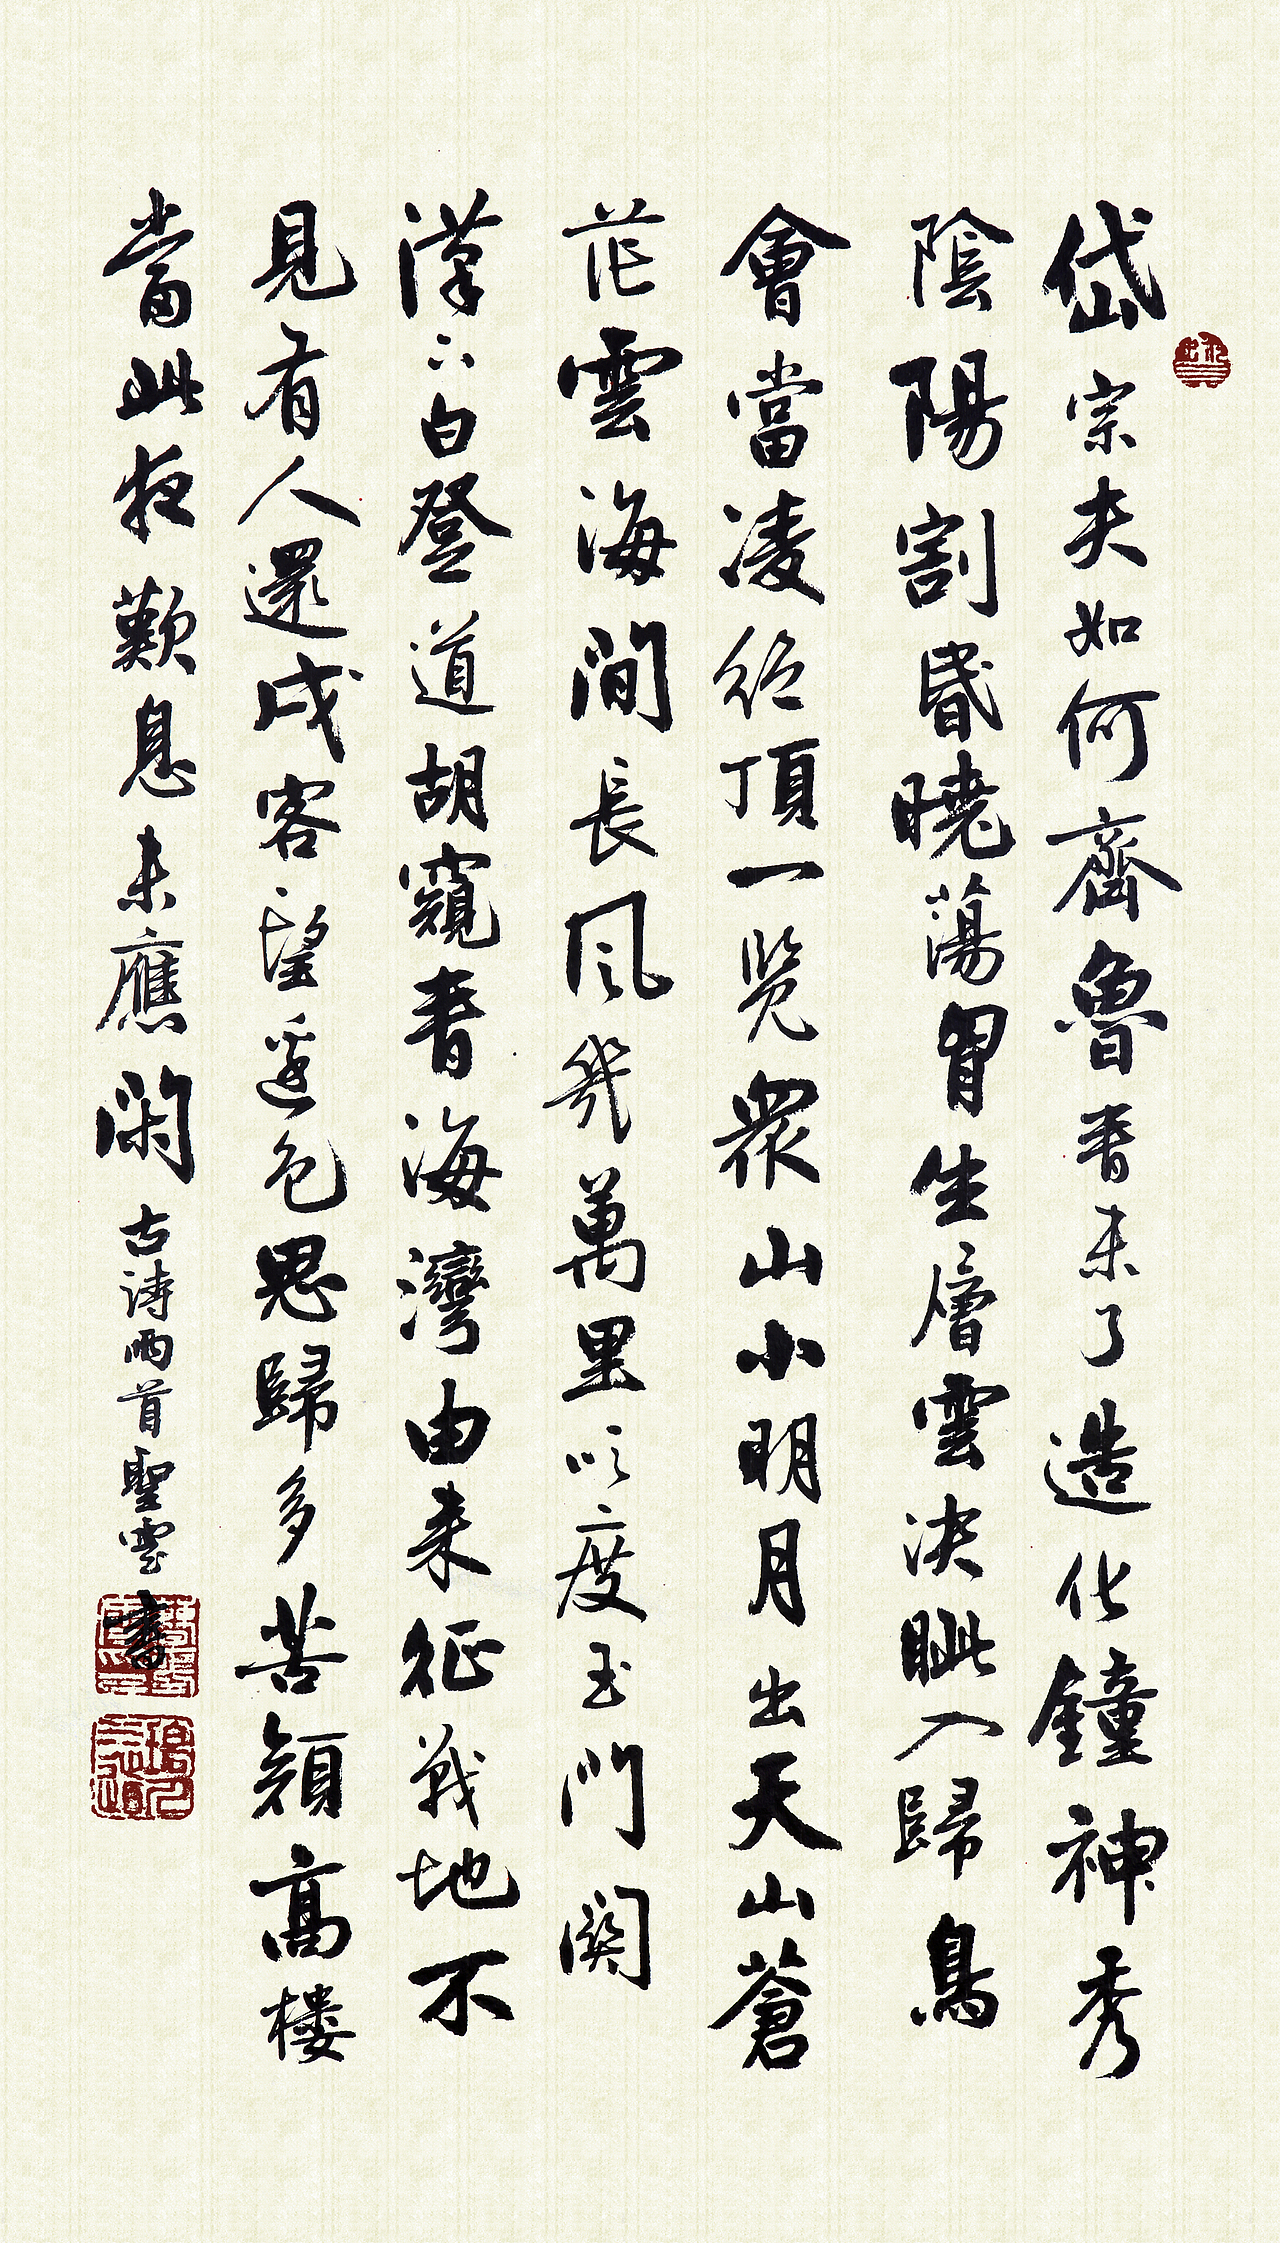 岱宗夫如何齊魯青未了造化鐘神秀
陰陽割昏曉蕩胷生層雲決眦入歸鳥
會當凌絕頂一覽眾山小明月出天山蒼
茫雲海間長風幾萬里吹度玉門関
漢下白登道胡窺青海灣由来征戰地不
見有人還戍客望邊色思歸多苦顏高樓
當此夜歎息未應閑
古詩兩首聖雲書